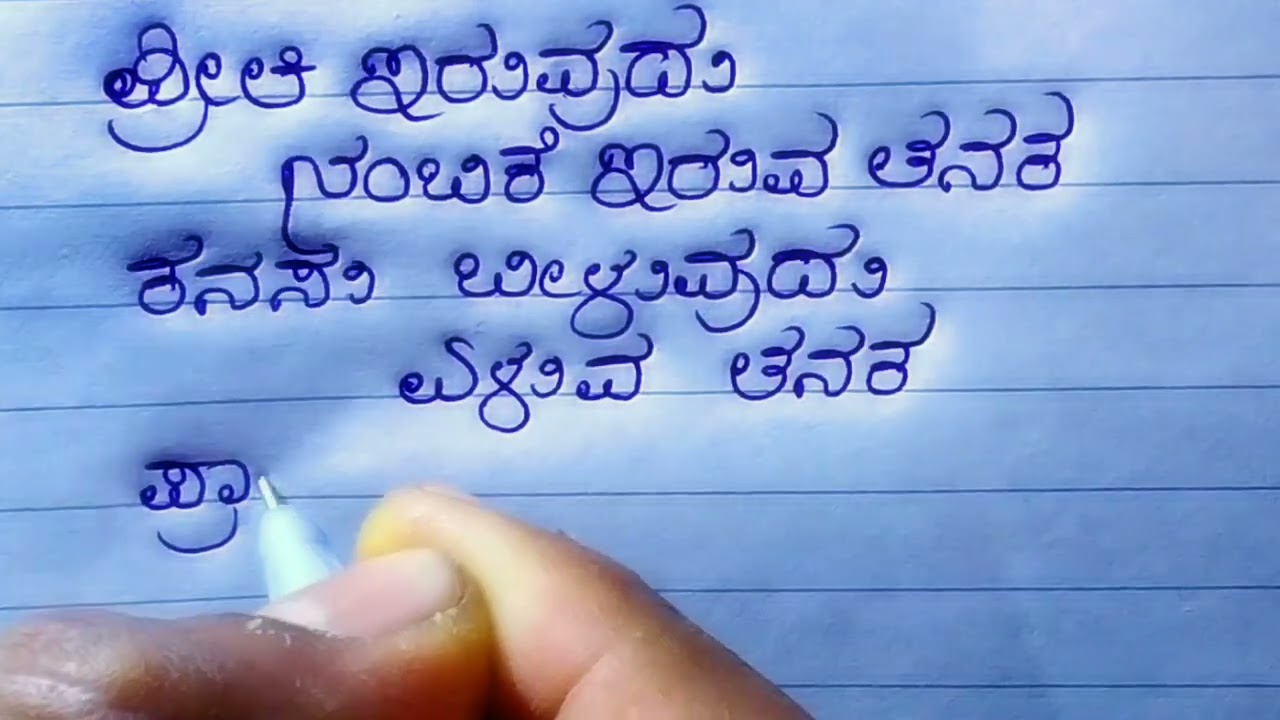 ಪ್ರೀತಿ ಇರುವುದು
ನಂಬಿಕೆ ಇರುವ ತನಕ
ಕನಸು ಬೀಳುವುದು
ಏಳುವ ತನಕ
ಪ್ರಾ